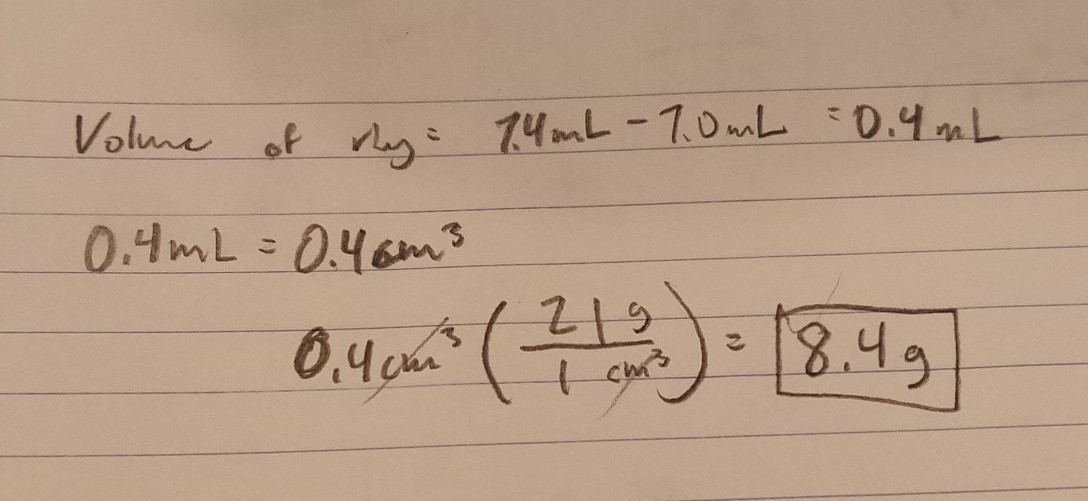 Volume of ring = 7.4mL - 7.0mL = 0.4mL
0.4mL = 0.4cm³
0.4cm³ (21g / 1cm³) = 8.4g